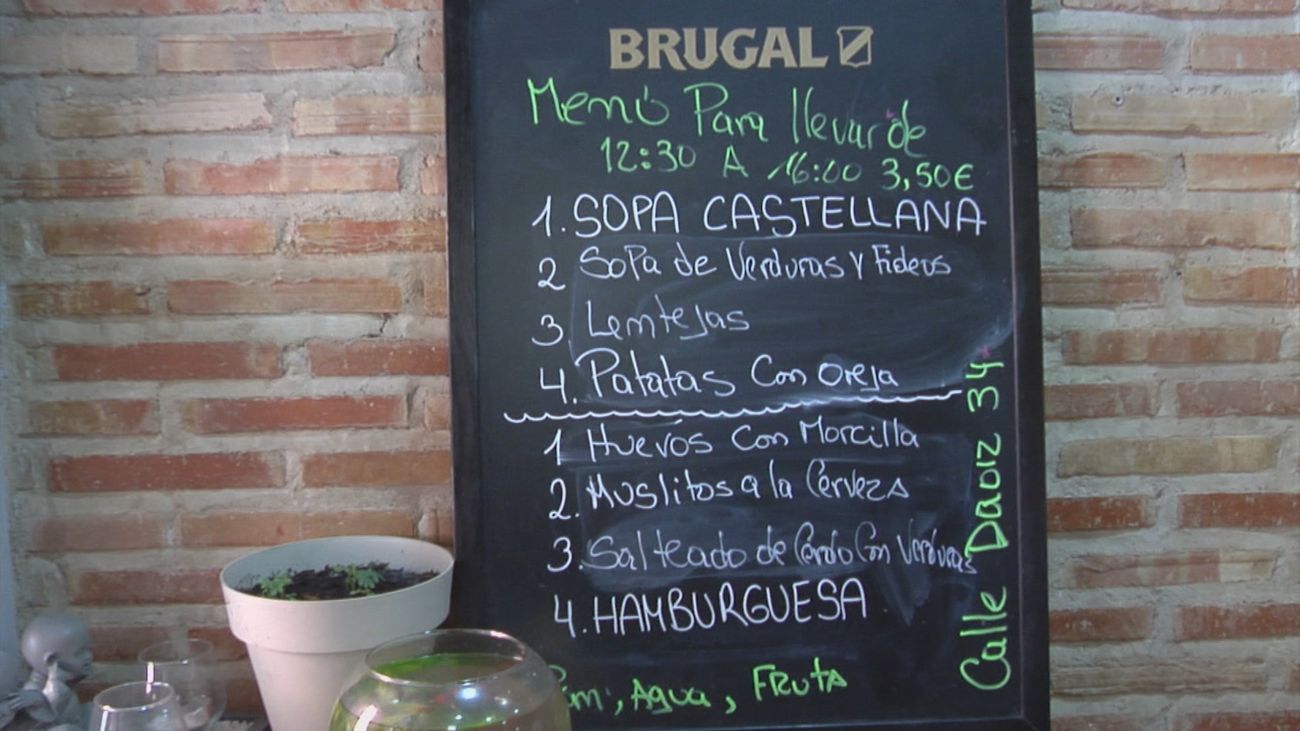 BRUGAL
Menú Para llevar de
12:30 A 16:00 3,50€
1. SOPA CASTELLANA
2 Sopa de Verduras y Fideos
3 Lentejas
4. Patatas Con oreja
1 Huevos Con Morcilla
2. Muslitos a la Cerveza
3. Salteado de Cerdo Con Verduras
4. HAMBURGUESA
, Agua, FRUTA
Calle Daoiz 34